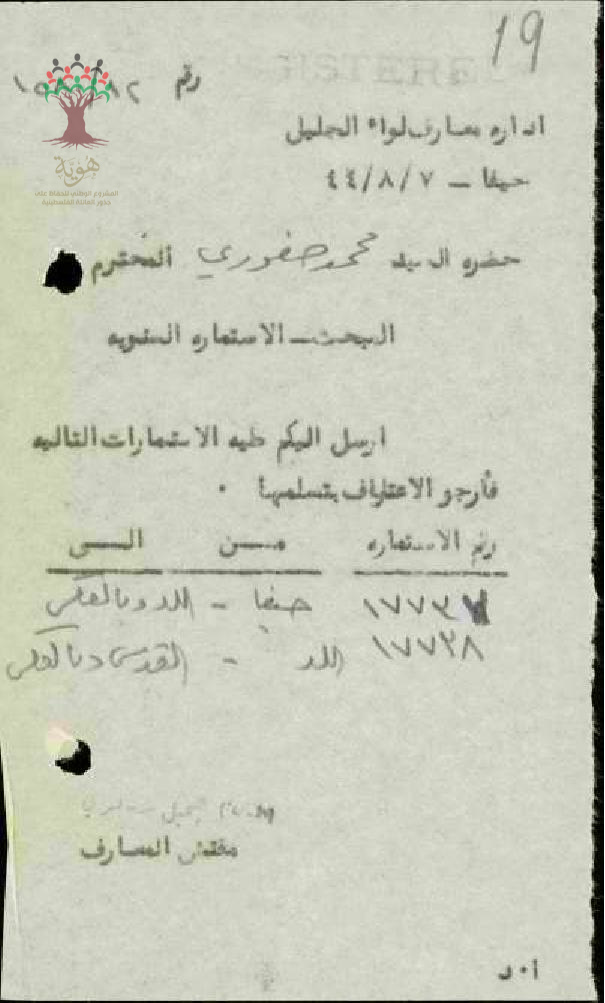 19
REGISTERED
رقم
هُوِيّة
المشروع الوطني للحفاظ على
جذور العائلة الفلسطينية
اداره معارف لواء الجليل
حيفا – ٤٤/٨/٧
حضره السيد محمد صفوري المحترم
البحث – الاستماره السنويه
ارسل اليكم طيه الاستمارات التاليه
فأرجو الاعتراف بتسلمها .
رقم الاستماره من الى
١٧٧٣٧ حيفا – اللد وبالعكس
١٧٧٣٨ اللد – القدس وبالعكس
مفتش المعارف
ا٠د